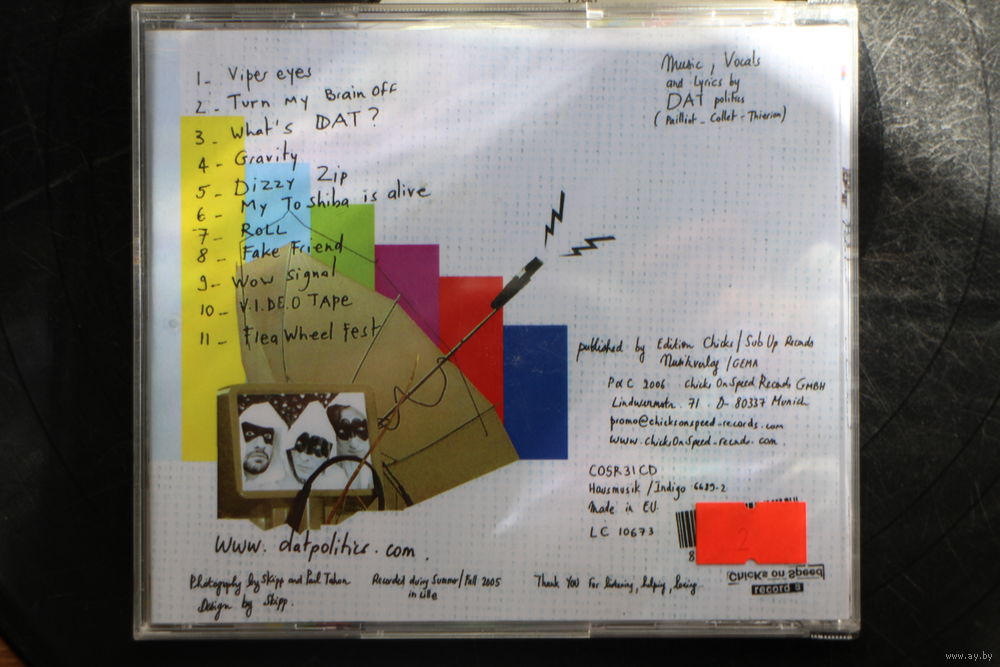 1_ Viper eyes
2_ Turn My Brain Off
3_ What's DAT?
4_ Gravity
5_ Dizzy Zip
6_ My Toshiba is alive
7_ RoLL
8_ Fake Friend
9_ Wow signal
10_ V.I.DE.O TAPE
11_ Flea Wheel Fest
Music, Vocals
and Lyrics by
DAT politics
(Pailliot_Collet-Thierion)
published by Edition Chicks/Sub Up Records
Musikverlag/GEMA
P&C 2006 Chicks On Speed Records GMBH
71. D-80337 Munich
promo@chicksonspeed-records.com
www.chicksOnSpeed-records.com
COSR31CD
Hausmusik/Indigo 6689-2
Made in EU
LC 10673
2
8
Chicks on Speed
records
www.datpolitics.com.
Photography by Skipp and Paul Tahon
Design by Skipp.
Recorded during Summer/Fall 2005
in Lille
Thank You For listening, helping, loving
www.ay.by